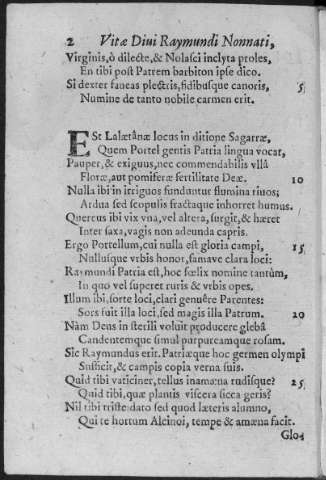 2 Vitæ Diui Raymundi Nonnati,
Virginis, ò dilecte, & Nolasci inclyta proles,
En tibi post Patrem barbiton ipse dico.
Si dexter faueas plectris, fidibusque canoris, 5
Numine de tanto nobile carmen erit.
ESt Lalætânæ locus in ditione Sagarræ,
Quem Portel gentis Patria lingua vocat,
Pauper, & exiguus, nec commendabilis vllâ
Floræ, aut pomiferæ fertilitate Deæ. 10
Nulla ibi in irriguos funduntur flumina riuos;
Ardua sed scopulis fractaque inhorret humus.
Quercus ibi vix vna, vel altera, surgit, & hæret
Inter saxa, vagis non adeunda capris.
Ergo Portellum, cui nulla est gloria campi, 15
Nullusque vrbis honor, famave clara loci:
Raymundi Patria est, hoc fœlix nomine tantùm,
In quo vel superet ruris & vrbis opes.
Illum ibi, forte loci, clari genuêre Parentes:
Sors fuit illa loci, sed magis illa Patrum. 20
Nàm Deus in sterili voluit producere glebâ
Candentemque simul purpureamque rosam.
Sic Raymundus erit. Patriæque hoc germen olympi
Sufficit, & campis copia verna suis.
Quid tibi vaticiner, tellus inamœna rudisque? 25
Quid tibi, quæ plantis viscera sicca geris?
Nil tibi triste dato sed quod læteris alumno,
Qui te hortum Alcinoi, tempe & amœna facit.
Glo-